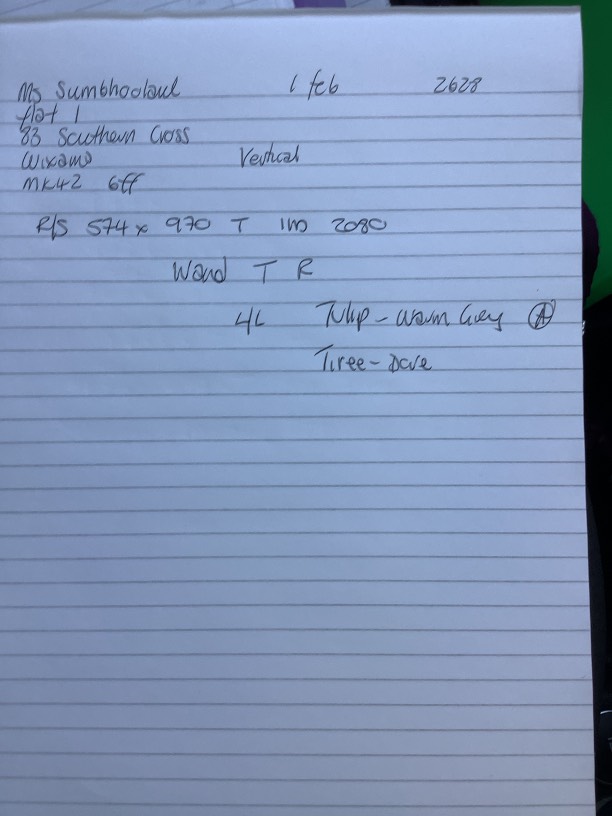 Ms Sumbhoolaul 1 feb 2628
flat 1
83 Southern Cross
Wixams Vertical
MK42 6FF
R/S 574 x 970 T IM 2080
Wand T R
4L Tulip - Warm Grey A
Tiree - Dove